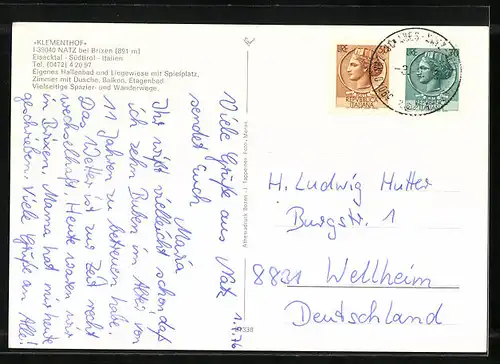 «KLEMENTHOF»
I-39040 NATZ bei Brixen (891 m)
Eisacktal - Südtirol - Italien
Tel. (0472) 4 20 97
Eigenes Hallenbad und Liegewiese mit Spielplatz,
Zimmer mit Dusche, Balkon, Etagenbad
Vielseitige Spazier- und Wanderwege.
Viele Grüße aus Natz
sendet Euch
Maria
1.9.76
Ihr wißt vielleicht schon daß
ich zehn Buben im Alter von
11 Jahren zu betreuen habe.
Das Wetter ist zur Zeit recht
wechselhaft. Heute waren wir
in Brixen. Mama hat mir heute
geschrieben. Viele Grüße an Alle!
Athesiadruck Bozen - J. Tappeiner Foto/Meran
338
LIRE
REPVBBLICA
ITALIANA
LIRE
H. Ludwig Hutter
Burgstr. 1
8831 Wellheim
Deutschland